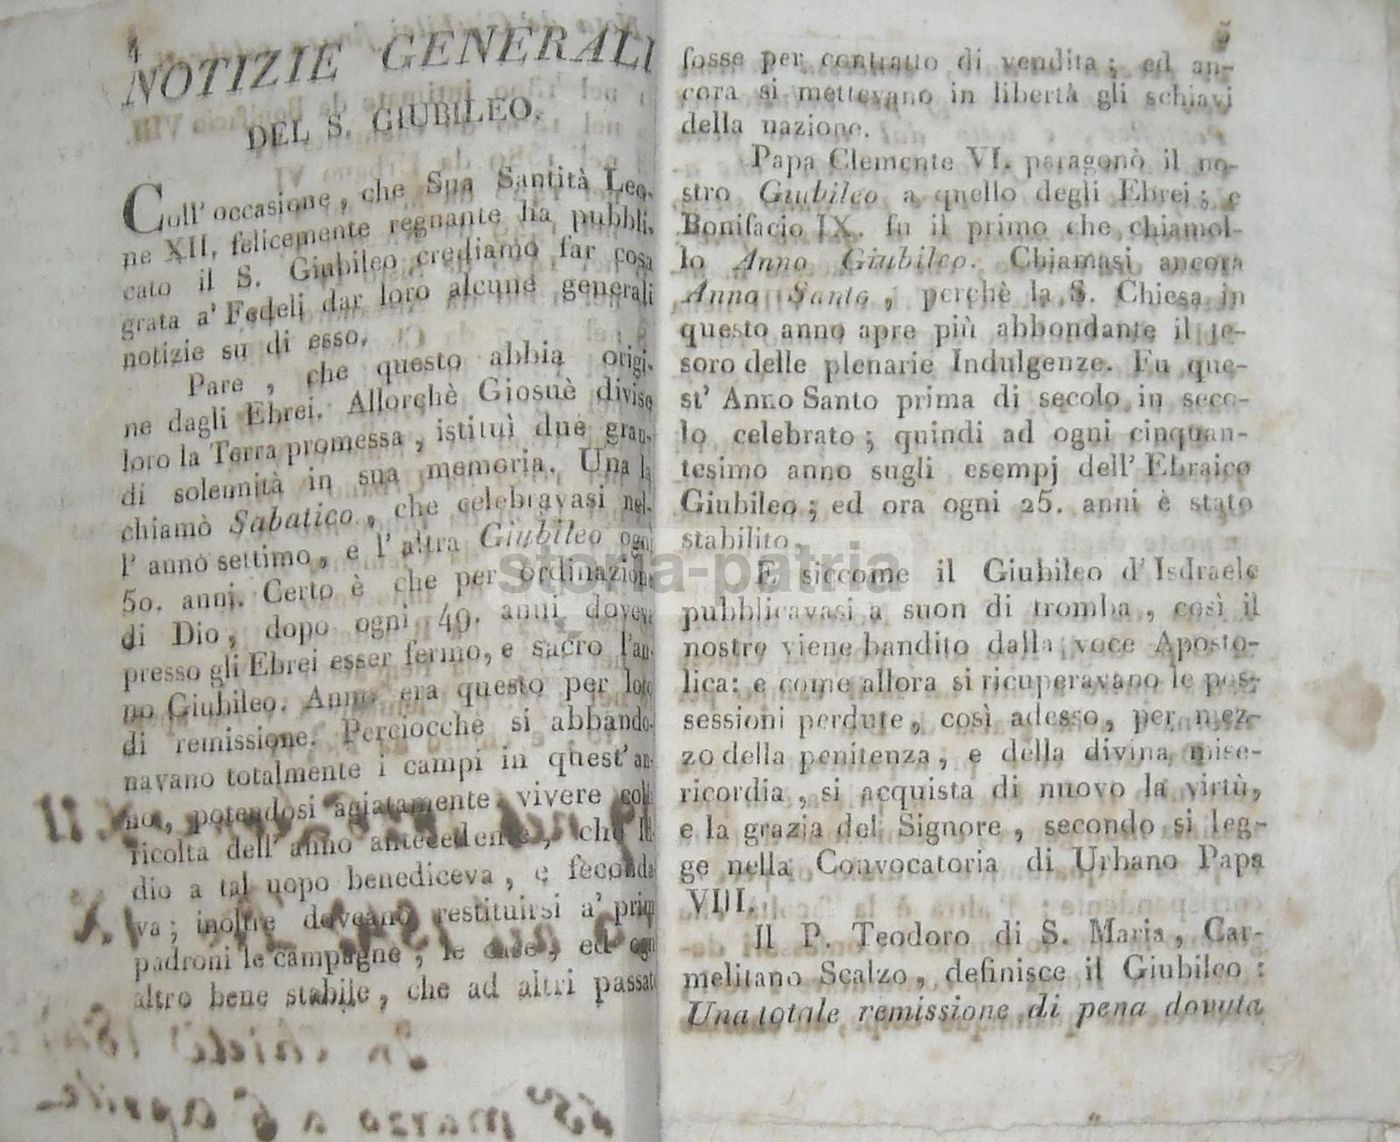 4
NOTIZIE GENERALI
DEL S. GIUBILEO.
Coll' occasione, che Sua Santità Leo-
ne XII. felicemente regnante ha pubbli-
cato il S. Giubileo crediamo far cosa
grata a' Fedeli dar loro alcune generali
notizie su di esso.
Pare, che questo abbia origi-
ne dagli Ebrei. Allorchè Giosuè divise
loro la Terra promessa, istituì due gran-
di solennità in sua memoria. Una la
chiamò Sabatico, che celebravasi nel-
l' anno settimo, e l' altra Giubileo ogni
50. anni. Certo è che per ordinazione
di Dio, dopo ogni 49. anni doveva
presso gli Ebrei esser fermo, e sacro l'an-
no Giubileo. Anno era questo per loro
di remissione. Perciocchè si abbando-
navano totalmente i campi in quest' an-
no, potendosi agiatamente vivere colla
ricolta dell' anno antecedente, che Id-
dio a tal uopo benediceva, e feconda-
va; inoltre doveano restituirsi a' primi
padroni le campagne, le case, ed ogni
altro bene stabile, che ad altri passato
5
fosse per contratto di vendita; ed an-
cora si mettevano in libertà gli schiavi
della nazione.
Papa Clemente VI. paragonò il no-
stro Giubileo a quello degli Ebrei; e
Bonifacio IX. fu il primo che chiamol-
lo Anno Giubileo. Chiamasi ancora
Anno Santo, perchè la S. Chiesa in
questo anno apre più abbondante il te-
soro delle plenarie Indulgenze. Fu que-
st' Anno Santo prima di secolo in seco-
lo celebrato; quindi ad ogni cinquan-
tesimo anno sugli esempj dell' Ebraico
Giubileo; ed ora ogni 25. anni è stato
stabilito.
storia-patria
E siccome il Giubileo d' Isdraele
pubblicavasi a suon di tromba, così il
nostro viene bandito dalla voce Aposto-
lica: e come allora si ricuperavano le pos-
sessioni perdute, così adesso, per mez-
zo della penitenza, e della divina mise-
ricordia, si acquista di nuovo la virtù,
e la grazia del Signore, secondo si leg-
ge nella Convocatoria di Urbano Papa
VIII.
Il P. Teodoro di S. Maria, Car-
melitano Scalzo, definisce il Giubileo:
Una totale remissione di pena dovuta